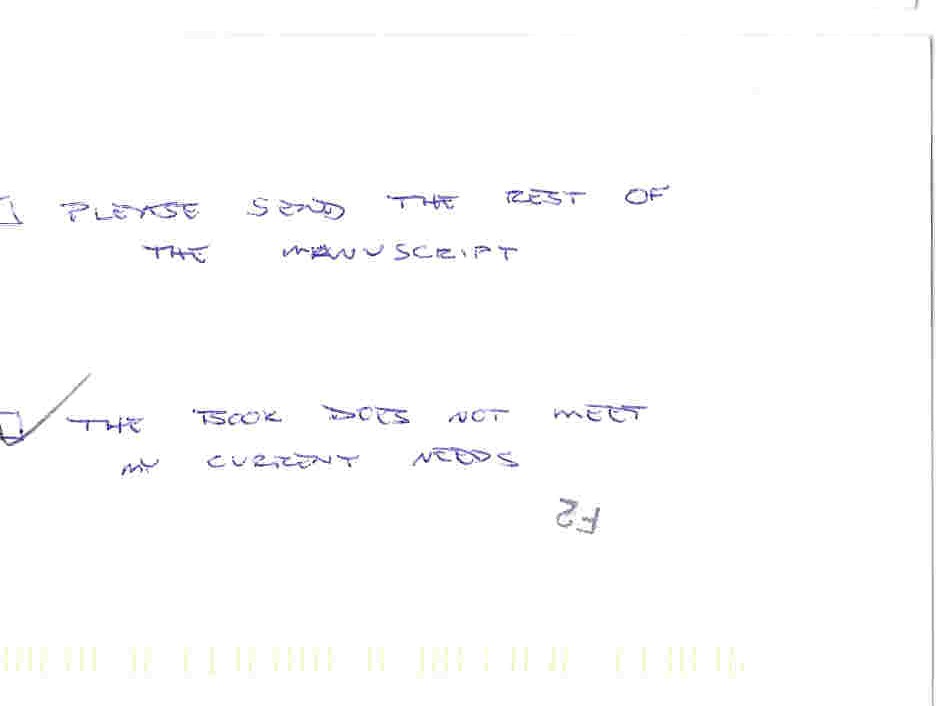 PLEASE SEND THE REST OF
THE MANUSCRIPT
THE BOOK DOES NOT MEET
MY CURRENT NEEDS
F2